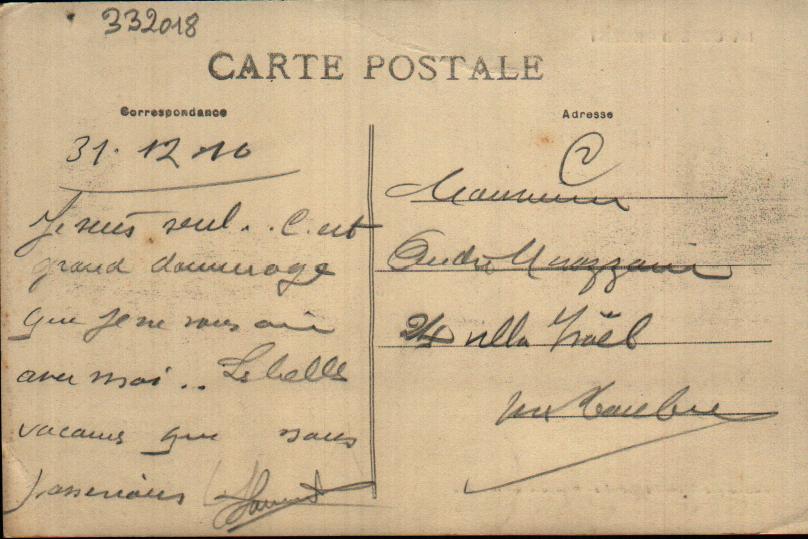 332018
CARTE POSTALE
Correspondance
Adresse
31.12.10
Je suis seul... C'est
grand dommage
que je ne vous aie
avec moi.. Les belles
vacances que nous
passerions
2
Monsieur
André
24 villa